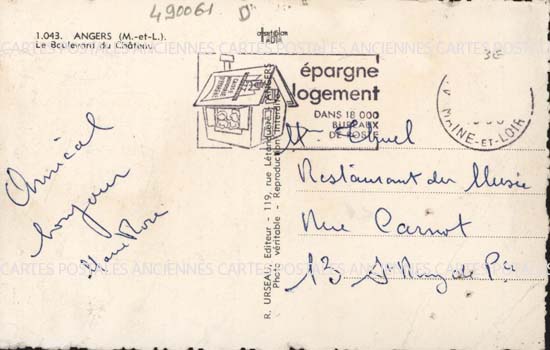 490061 D
1.043. ANGERS (M.-et-L.).
Le Boulevard du Château
épargne
logement
DANS 18 000
BUREAUX
DE POSTE
MAINE-ET-LOIR
3E
Amical
bonjour
Restaurant du Musée
Rue Carnot
13
R. URSEAU, Editeur - 119, rue ANGERS
Photo véritable - Reproduction interdite
CARTES POSTALES ANCIENNES CARTES POSTALES ANCIENNES CARTES POSTALES ANCIENNES
CARTES POSTALES ANCIENNES CARTES POSTALES ANCIENNES CARTES POSTALES ANCIENNES